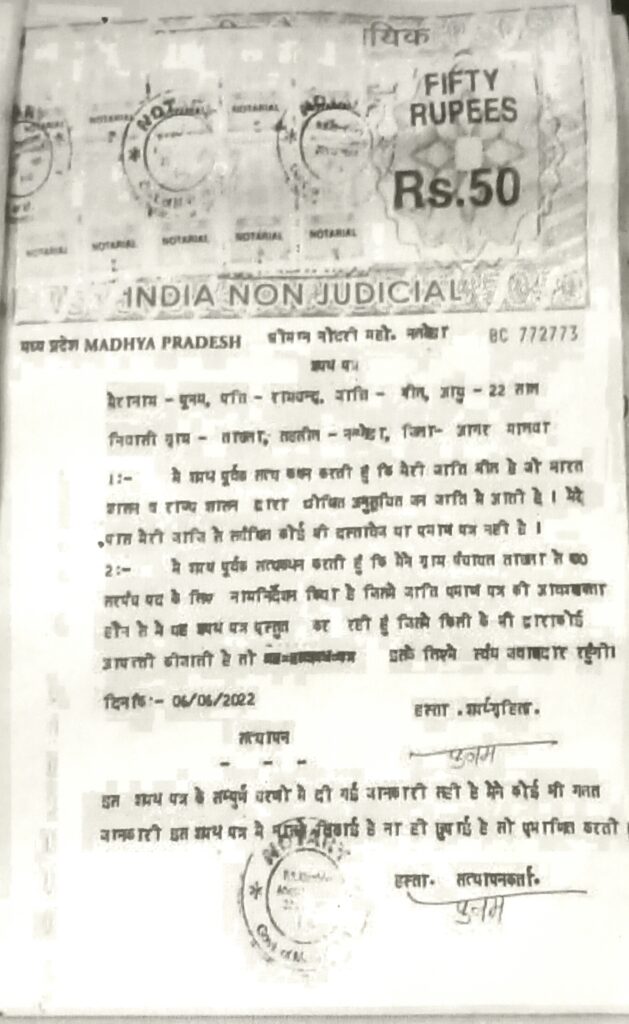 यिक
FIFTY
RUPEES
Rs.50
NOTARIAL NOTARIAL
NOTARIAL NOTARIAL NOTARIAL NOTARIAL NOTARIAL
INDIA NON JUDICIAL
मध्य प्रदेश MADHYA PRADESH श्रीमान नोटरी महो. नलखेड़ा BC 772773
शपथ पत्र
मेरानाम - पुनम, पति - रामचन्द्र, जाति - भील, आयु - 22 साल
निवासी ग्राम - ताखला, तहसील - नलखेड़ा, जिला- आगर मालवा
1:- मै शपथ पूर्वक सत्य कथन करती हुँ कि मेरी जाति भील है जो भारत
शासन व राज्य शासन द्वारा घोषित अनुसुचित जन जाति मे आती है । मेरे
पास मेरी जाति से संबंधित कोई भी दस्तावेज या प्रमाण पत्र नही है ।
2:- मै शपथ पूर्वक सत्यकथन करती हुँ कि मैने ग्राम पंचायत ताखला से
सरपंच पद के लिए नामनिर्देशन किया है जिसमे जाति प्रमाण पत्र की आवश्यकता
होने से मे यह शपथ पत्र प्रस्तुत कर रही हुँ जिसमे किसी के भी द्वाराकोई
आपत्ती कीजाती है तो इसके लिये स्वंय जवाबदार रहुँगी।
दिनांक:- 06/06/2022
हस्ता .शपथगृहिता.
सत्यापन
पुनम
इस शपथ पत्र के सम्पुर्ण चरणो मे दी गई जानकारी सही है मैने कोई भी गलत
जानकारी इस शपथ पत्र मे है ना ही छुपाई है तो प्रमाणित करती
NOTARY
हस्ता. सत्यापनकर्ता.
पुनम